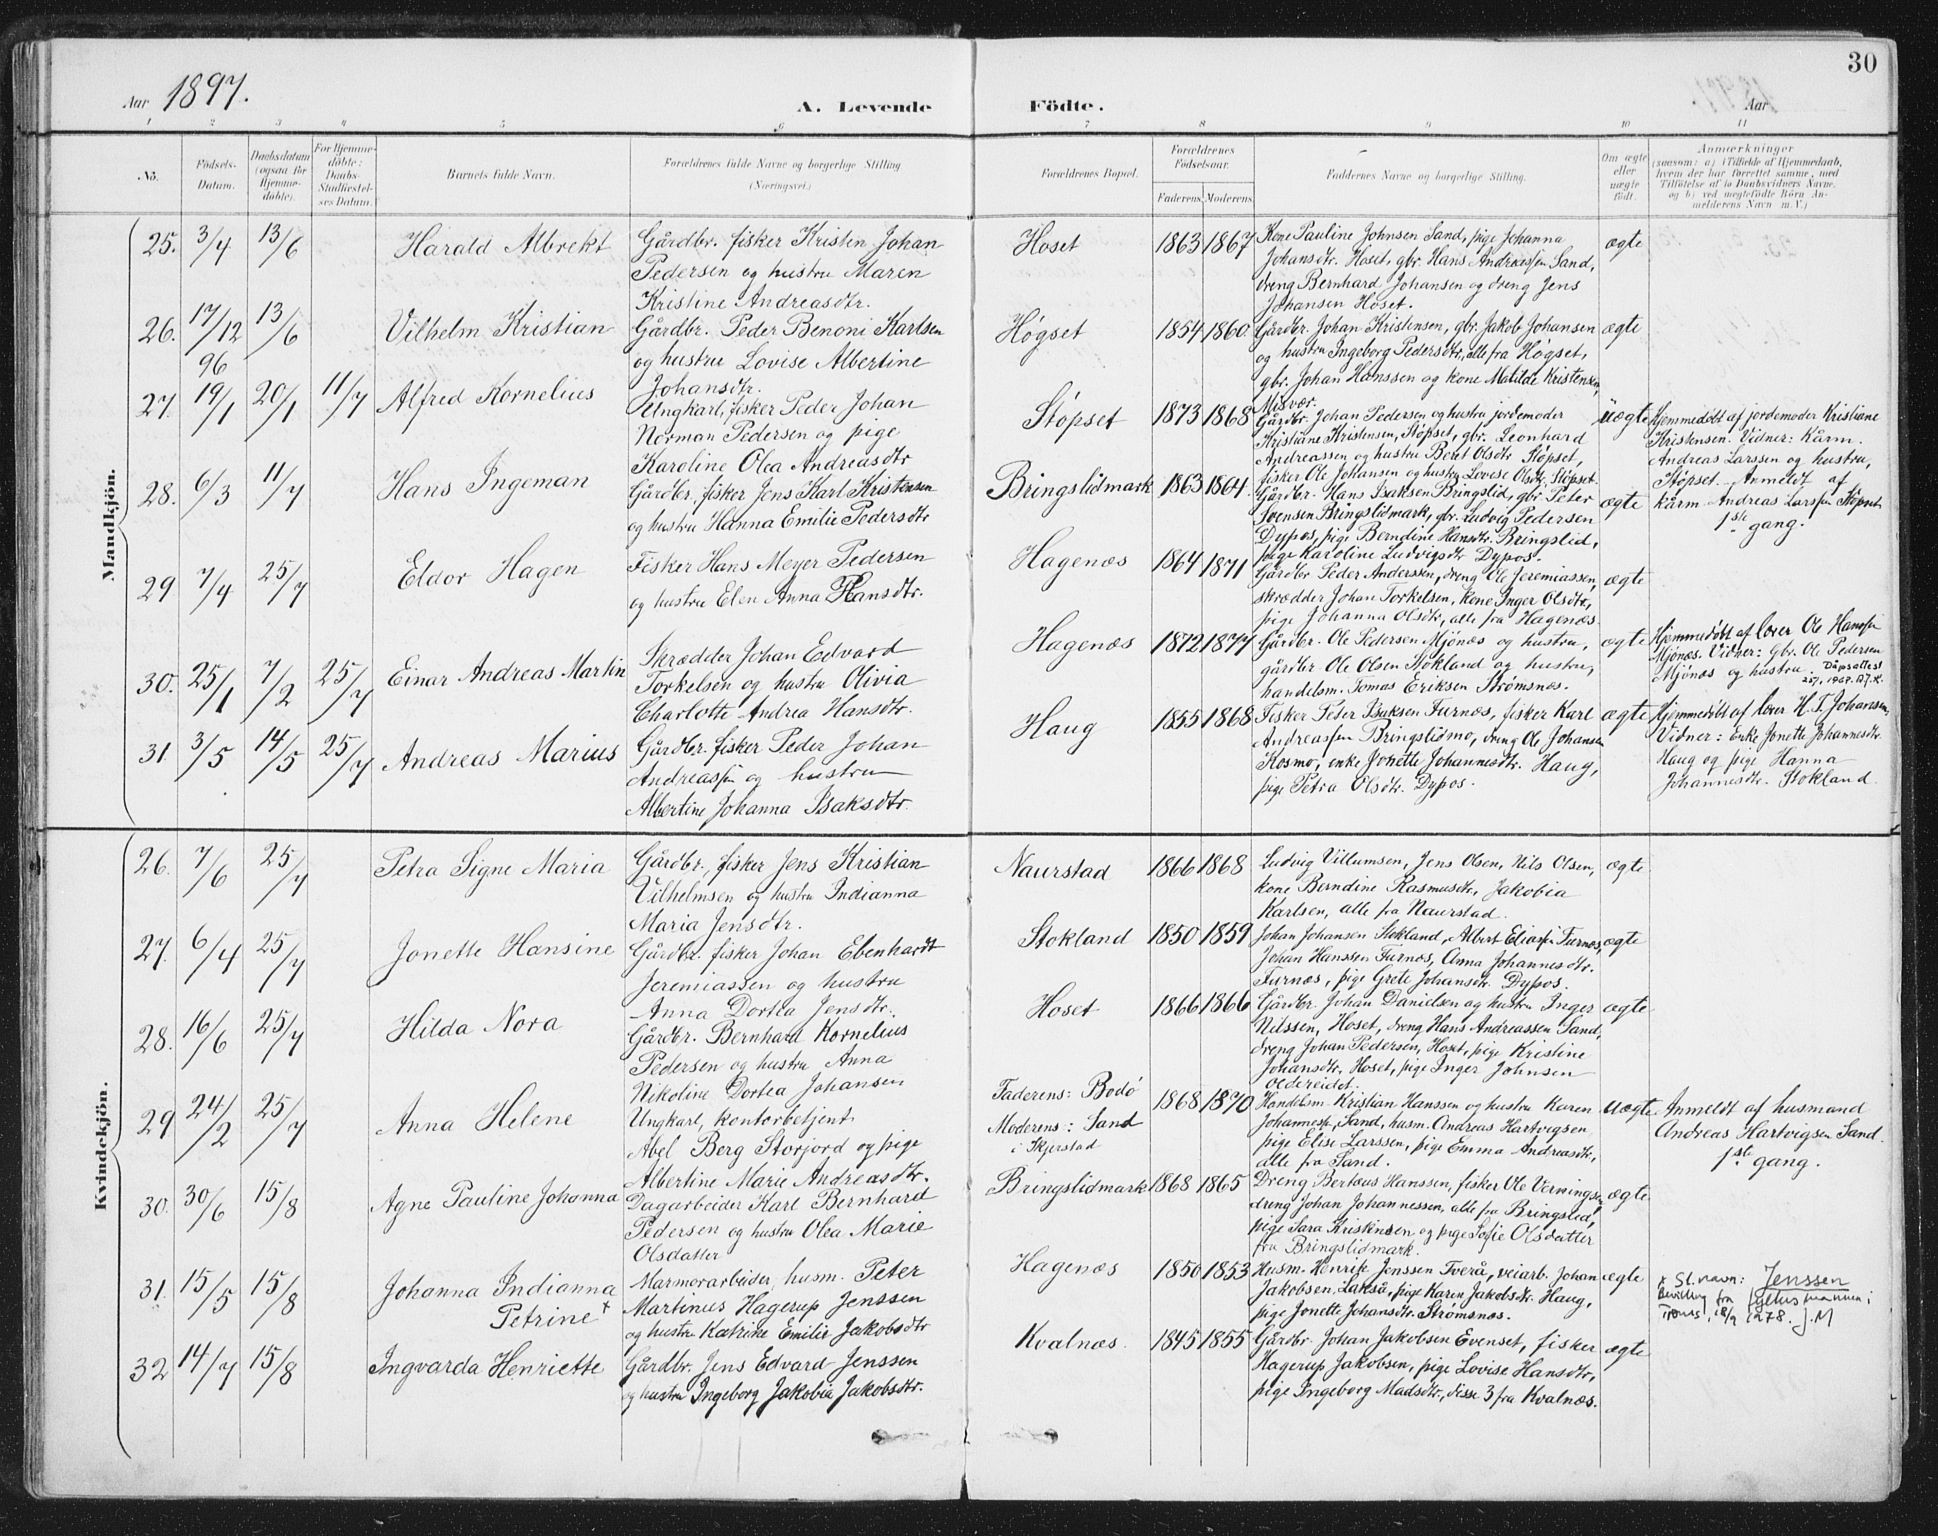 30
Aar 1897. A. Levende Födte. Aar
1 2 3 4 5 6 7 8 9 10 11
No. Födsels-Datum. Daabsdatum (ogsaa for Hjemmedøbte). For Hjemmedöbte: Daabs-Stadfæstelses Datum. Barnets fulde Navn. Forældrenes fulde Navne og borgerlige Stilling. (Næringsvei.) Forældrenes Bopæl. Forældrenes Födselsaar. Faderens. Moderens. Faddernes Navne og borgerlige Stilling. Om ægte eller uægte födt. Anmærkninger
Mandkjön.
25. 3/4 13/6 Harald Albrekt
Gårdbr. fisker Kristen Johan
Pedersen og hustru Maren
Kristine Andreasdtr.
Hoset 1863 1867
Kone Pauline Johnsen Sand, pige Johanna
Johansdtr. Hoset, gbr. Hans Andreassen Sand,
dreng Bernhard Johansen og dreng Jens
Johansen Hoset.
ægte
26. 17/12 96 13/6 Vilhelm Kristian
Gårdbr. Peder Benoni Karlsen
og hustru Lovise Albertine
Johansdtr.
Høgset 1854 1860
Gårdbr. Johan Kristensen, gbr. Jakob Johansen
og hustru Ingeborg Pedersdtr, alle fra Høgset,
gbr. Johan Hanssen og kone Matilde Kristensen,
Misvær.
ægte
27. 19/1 20/1 11/7 Alfred Kornelius
Ungkarl, fisker Peder Johan
Norman Pedersen og pige
Karoline Olea Andreasdtr
Støpset 1873 1868
Gårdbr. Johan Pedersen og hustru jordemoder
Kristiane Kristensen, Støpset, gbr. Leonhard
Andreassen og hustru Beret Olsdtr Støpset,
fisker Ole Johansen og hustru Lovise Olsdtr, Støpset.
uægte
Hjemmedøbt af jordemoder Kristiane
Kristensen. Vidner: Kårm.
Andreas Larssen og hustru,
Støpset. Anmeldt af
kårm. Andreas Larssen Støpset
1ste gang.
28. 6/3 11/7 Hans Ingeman
Gårdbr. fisker Jens Karl Kristensen
og hustru Hanna Emilie Pedersdtr
Bringslidmark 1863 1864.
Gårdbr. Hans Isaksen Bringslid, gbr. Peter
Svensen Bringslidmark, gbr. Ludvig Pedersen
Dypos, pige Berndine Hansdtr. Bringslid,
pige Karoline Ludvigsdtr Dypos.
ægte
29 7/4 25/7 Eldor Hagen
Fisker Hans Meyer Pedersen
og hustru Elen Anna Hansdtr.
Hagenæs 1864 1871
Gårdbr Peder Anderssen, dreng Ole Jeremiassen,
skrædder Johan Torkelsen, kone Inger Olsdtr,
pige Johanna Olsdtr, alle fra Hagenæs.
ægte
30. 25/1 7/2 25/7 Einar Andreas Martin
Skrædder Johan Edvard
Torkelsen og hustru Olivia
Charlotte Andrea Hansdtr.
Hagenæs 1872 1877
Gårdbr. Ole Pedersen Mjönæs og hustru,
gårdbr Ole Olsen Stokland og hustru,
handelsm. Tomas Eriksen Strømsnæs.
ægte
Hjemmedøbt af lærer Ole Hanssen
Mjönæs. Vidner: gbr. Ole Pedersen
Mjönæs og hustru. Dåpsattest
31. 3/5 14/5 25/7 Andreas Marius
Gårdbr. fisker Peder Johan
Andreassen og hustru
Albertine Johanna Isaksdtr.
Haug 1855 1868
Fisker Peter Isaksen Furnæs, fisker Karl
Andreassen Bringslidmo, dreng Ole Johansen
Kosmo, enke Jonette Johannesdtr. Haug,
pige Petra Olsdtr. Dypos.
ægte
Hjemmedøbt af lærer H. T. Johansen,
Vidner: enke Jonette Johannesdtr
Haug og pige Hanna
Johannesdtr. Stokland.
Kvindekjön.
26. 7/6 25/7 Petra Signe Maria
Gårdbr., fisker Jens Kristian
Vilhelmsen og hustru Indianna
Maria Jensdtr.
Naurstad 1866 1868
Ludvig Villumsen, Jens Olsen, Nils Olsen,
kone Berndine Rasmusdtr, Jakobia
Karlsen, alle fra Naurstad.
ægte
27. 6/4 25/7 Jonette Hansine
Gårdbr. fisker Johan Ebenhardt
Jeremiassen og hustru
Anna Dortea Jensdtr.
Stokland 1850 1859
Johan Johansen Stokland, Albert Eliassen Furnæs,
Johan Hanssen Furnæs, Anna Johannesdtr.
Furnæs, pige Grete Johansdtr. Dypos.
ægte
28. 16/6 25/7 Hilda Nora
Gårdbr. Bernhard Kornelius
Pedersen og hustru Anna
Nikoline Dortea Johansen
Hoset 1866 1866
Gårdbr. Johan Danielsen og hustru Inger
Nilssen, Hoset, dreng Hans Andreassen Sand,
dreng Johan Pedersen, Hoset, pige Kristine
Johansdtr, Hoset, pige Inger Johnsen
Oldereidet.
ægte
29 24/2 25/7 Anna Helene
Ungkarl, kontorbetjent
Abel Berg Storjord og pige
Albertine Marie Andreasdtr.
Faderens: Bodø
Moderens: Sand
i Skjerstad
1868 1870
Handelsm. Kristian Hanssen og hustru Karen
Johannesdtr, Sand, husm. Andreas Hartvigsen
pige Elise Larssen, pige Emma Andreasdtr,
alle fra Sand.
uægte
Anmeldt af husmand
Andreas Hartvigsen Sand.
1ste gang.
30. 30/6 15/8 Agne Pauline Johanna
Dagarbeider Karl Bernhard
Pedersen og hustru Olea Marie
Olsdatter
Bringslidmark 1868 1865
Dreng Berteus Hanssen, fisker Ole Verningsen,
dreng Johan Johannessen, alle fra Bringslid,
pige Sara Kristensen og pige Sofie Olsdatter
fra Bringslidmark.
ægte
31. 15/5 15/8 Johanna Indianna
Petrine +
Marmorarbeider, husm. Peter
Martinus Hagerup Jenssen
og hustru Katrine Emilie Jakobsdtr
Hagenæs 1850 1853
Husm. Henrik Jenssen Tverå, veiarb. Johan
Jakobsen, Lakså, pige Karen Jakobsdtr. Haug,
pige Jonette Johansdtr. Strømsnæs.
ægte
x Sl.navn: Jenssen
Bevilling fra fylkesmannen i
Troms, 18/9 1278. J.M
32 14/7 15/8 Ingvarda Henriette
Gårdbr. Jens Edvard Jenssen
og hustru Ingeborg Jakobia Jakobsdtr.
Kvalnæs. 1845 1855
Gårdbr. Johan Jakobsen Evenset, fisker
Hagerup Jakobsen, pige Lovise Hansdtr,
pige Ingeborg Madsdtr., disse 3 fra Kvalnæs.
ægte